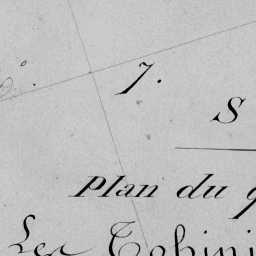 7.
S
Plan du q
Les Cobini